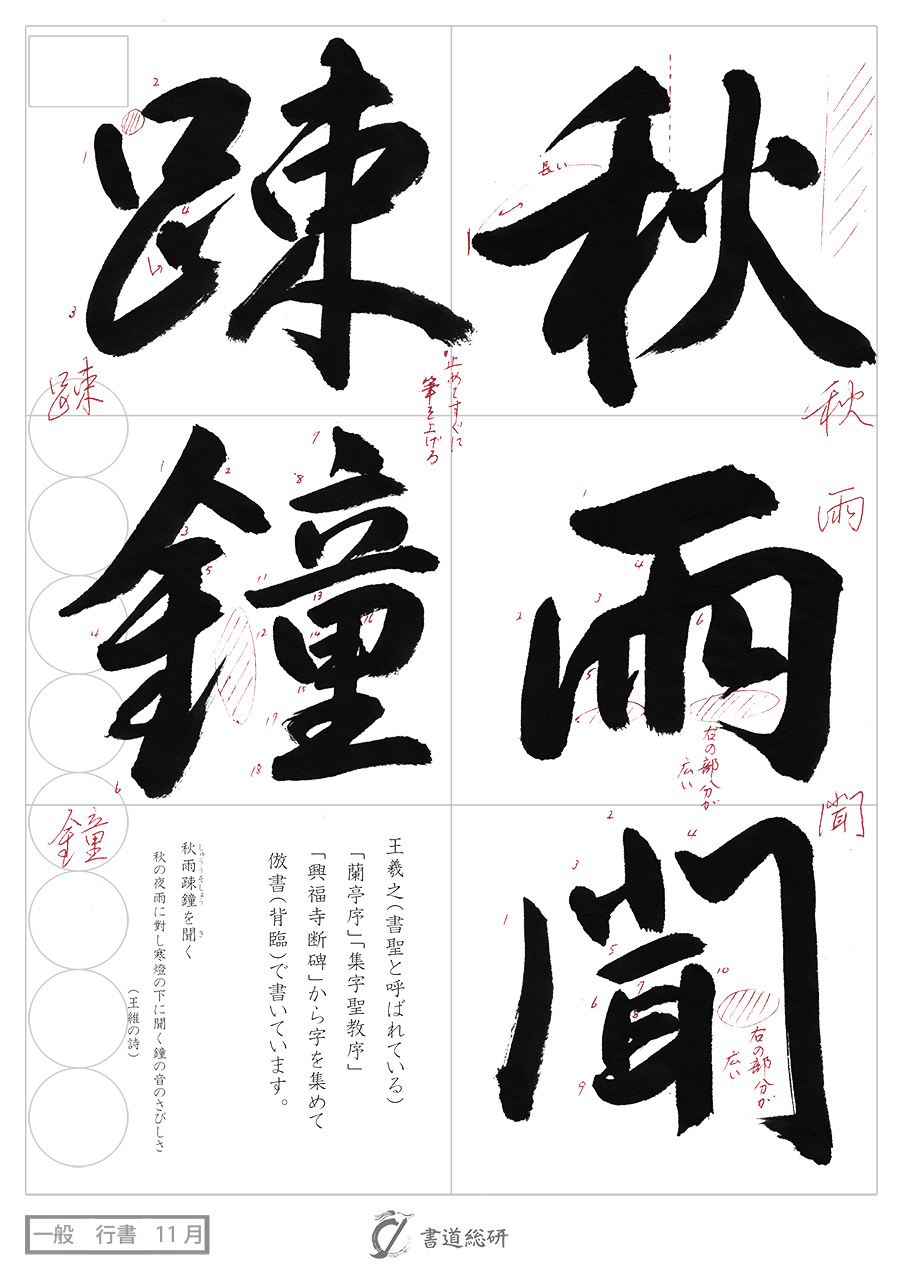 秋
雨
聞
疎
鐘
長い
右の部分が
広い
右の部分が
広い
止めてすぐに
筆を上げる
秋
雨
聞
疎
鐘
王羲之(書聖と呼ばれている)
「蘭亭序」「集字聖教序」
「興福寺断碑」から字を集めて
倣書(背臨)で書いています。
秋雨疎鐘を聞く
しゅううそしょう き
秋の夜雨に對し寒燈の下に聞く鐘の音のさびしさ
(王維の詩)
一般 行書 11月
書道総研